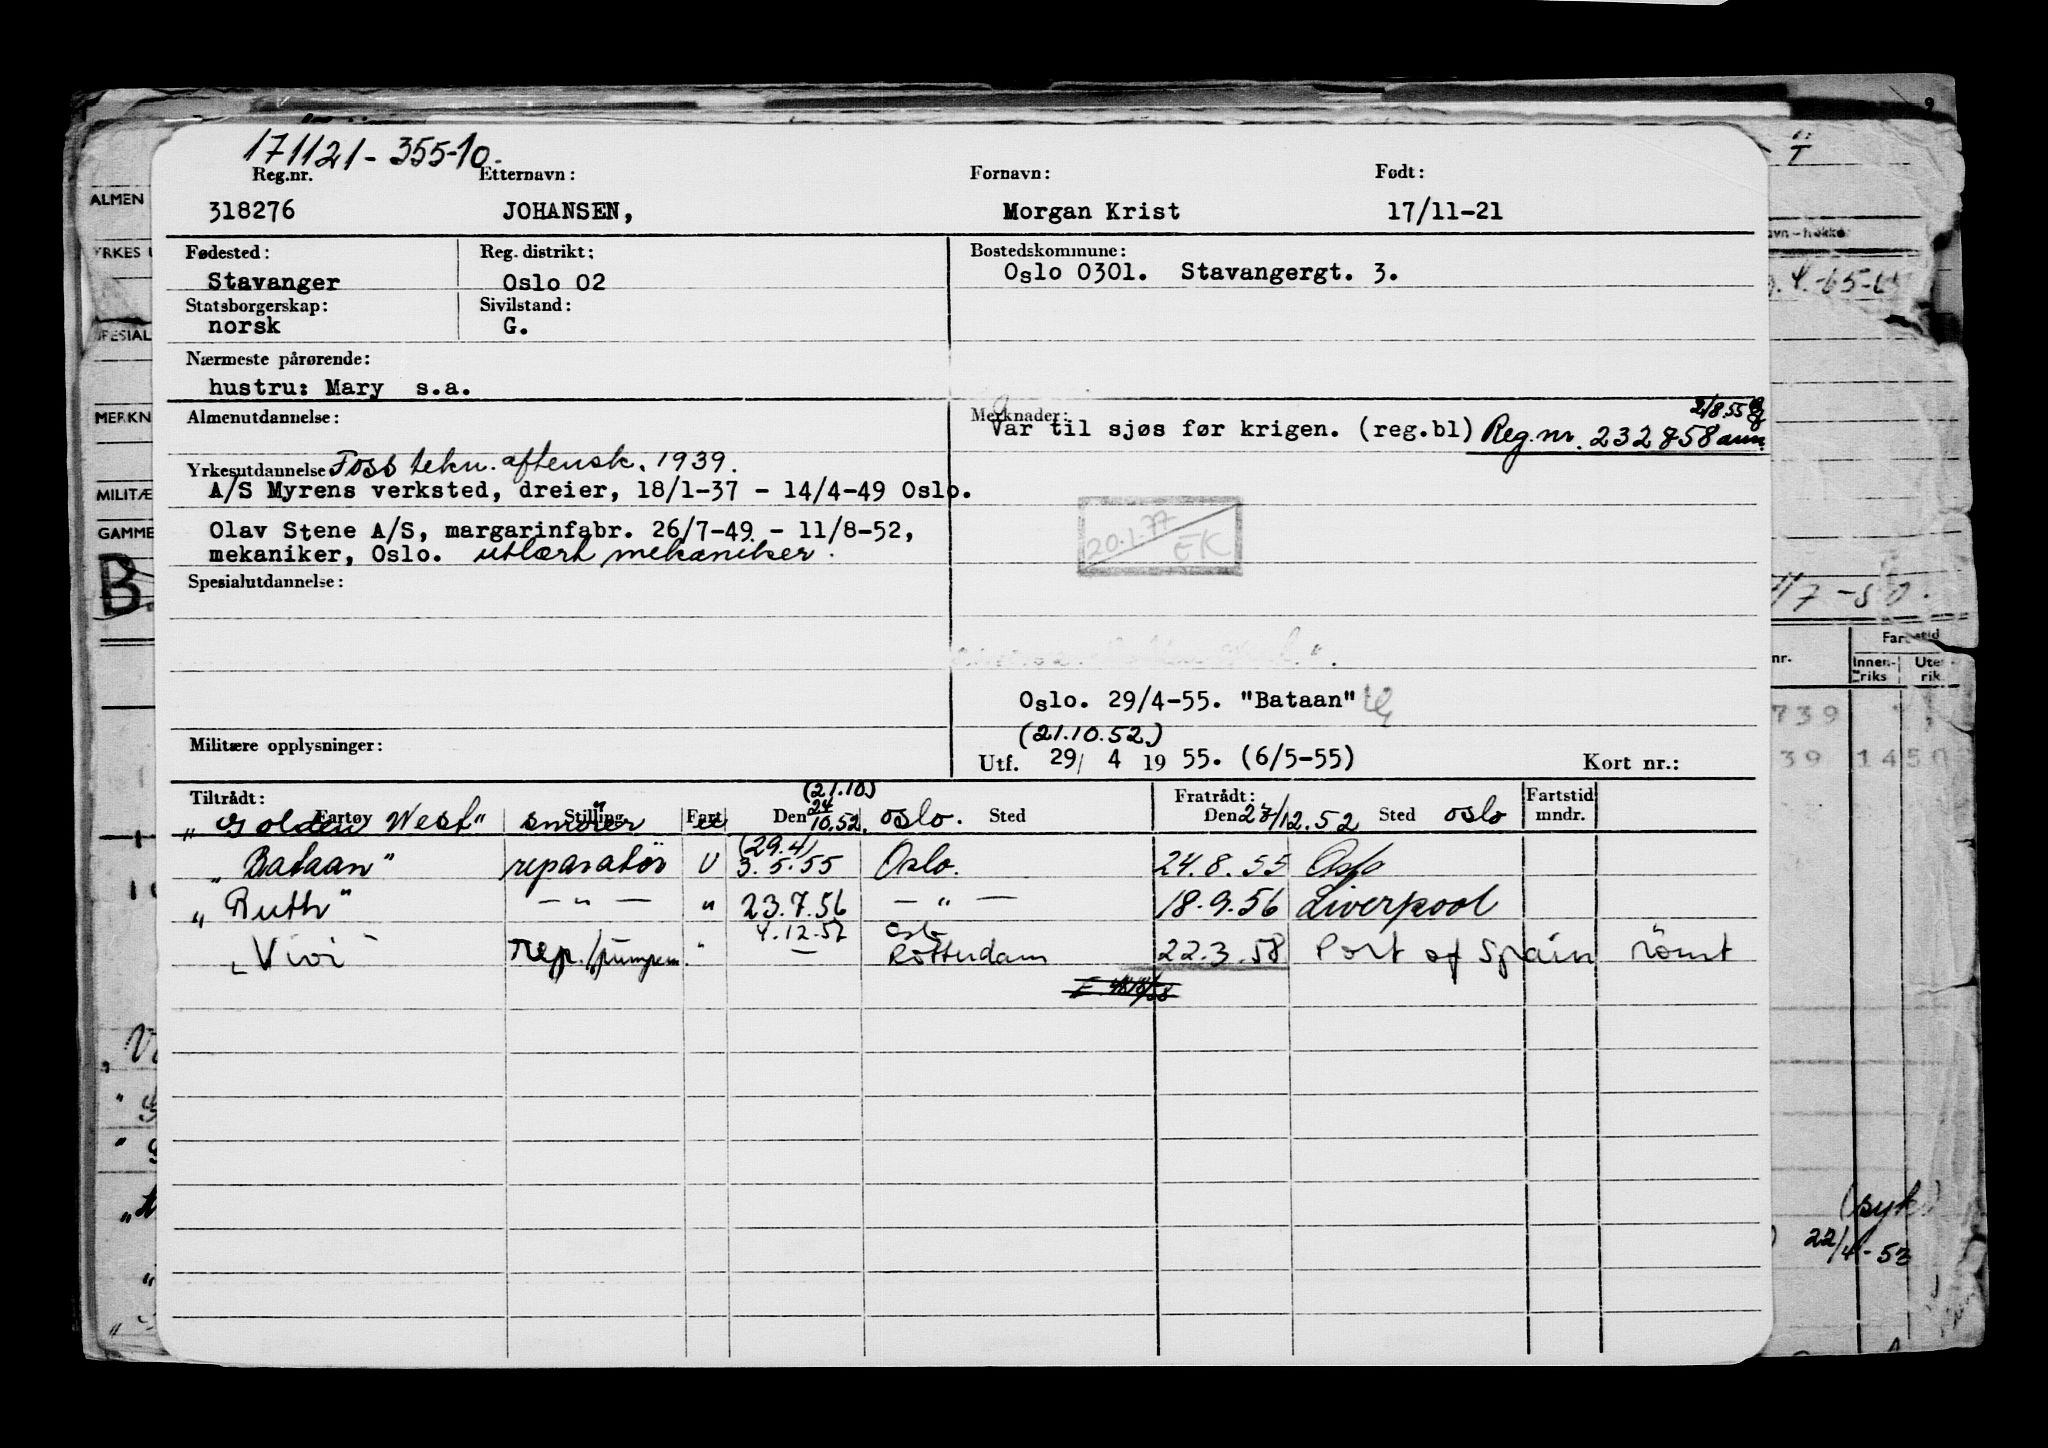 171121-355-10.
Reg.nr. Etternavn: Fornavn: Født:
318276 JOHANSEN, Morgan Krist 17/11-21
Fødested: Reg. distrikt: Bostedskommune:
Stavanger Oslo 02 Oslo 0301. Stavangergt. 3.
Statsborgerskap: Sivilstand:
norsk G.
Nærmeste pårørende:
hustru: Mary s.a.
2/8.55
Almenutdannelse: Merknader:
Var til sjøs før krigen. (reg.bl) Reg.nr. 232858 ann.
Yrkesutdannelse Foss tekn. aftensk. 1939.
A/S Myrens verksted, dreier, 18/1-37 - 14/4-49 Oslo.
Olav Stene A/S, margarinfabr. 26/7-49 - 11/8-52,
mekaniker, Oslo. utlært mekaniker.
20.1.77 EK
Spesialutdannelse:
Oslo. 29/4-55. "Bataan"
(21.10.52.)
Militære opplysninger: Utf. 29/ 4 19 55. (6/5-55) Kort nr.:
Tiltrådt: (21.10) Fratrådt: Fartstid
Fartøy Stilling Fart Den Sted Den Sted mndr.
"Golden West" smører u 24/10.52. oslo. 27/12.52 oslo
(29.4)
"Bataan" reparatør U 3.5.55 Oslo. 24.8.55 Oslo
"Ruth" — " — " 23.7.56 — " — 18.9.56 Liverpool
4.12.57 Oslo
"Vivi" rep./pumpem. " — Rotterdam 22.3.58 Port of Spain rømt
ALMEN
YRKES U
SPESIAL
MERKN
MILITÆ
GAMME
B.
avn-rekke
417-50.
Fartstid
nr. Innen- Ute
riks rik
739
39 1450
(syk)
22/4-53